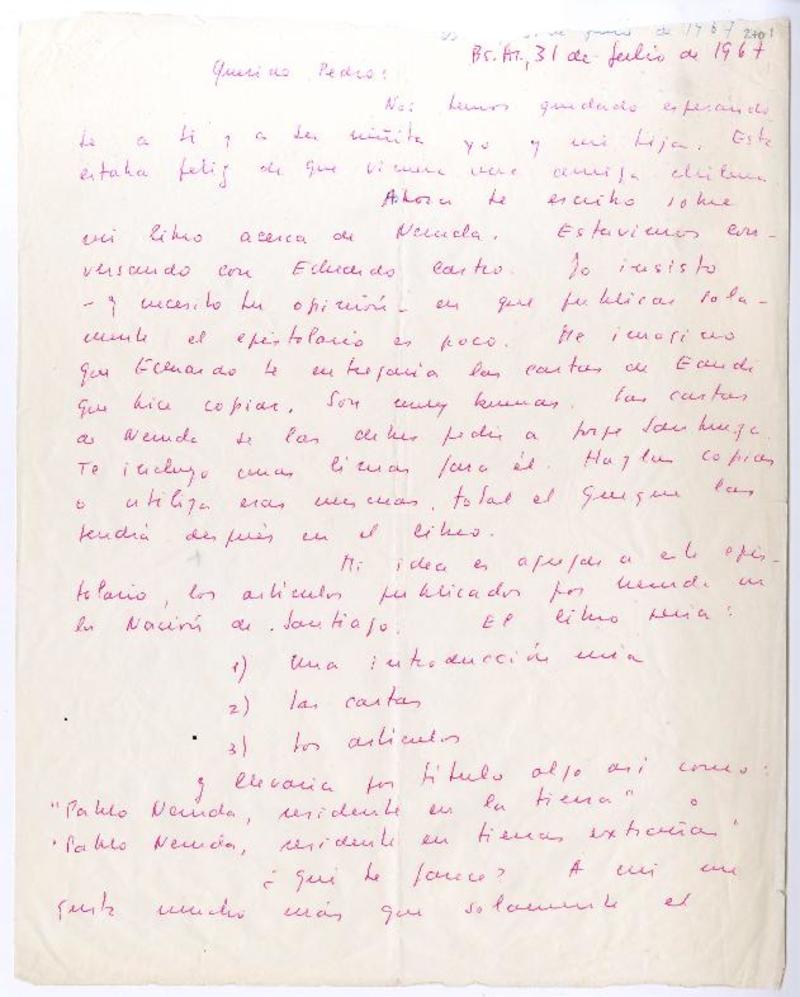 de 1967 2701
Bs. As., 31 de Julio de 1967
Querido Pedro:
Nos hemos quedado esperando
te a ti y a tu niñita yo y mi hija. Esta
estaba feliz de que viniera una amiga chilena
Ahora te escribo sobre
mi libro acerca de Neruda. Estuvimos con-
versando con Eduardo Castro. Yo insisto
- y necesito tu opinión - en que publicar sola-
mente el epistolario es poco. Me imagino
que Eduardo te entregaría las cartas de Eandi
que hice copiar. Son muy buenas. Las cartas
de Neruda se las debes pedir a Jorge Sanhueza.
Te incluyo unas líneas para él. Haz las copias
o utiliza esas mismas, total el las
tendrá después en el libro.
Mi idea es agregar a este epis-
tolario, los artículos publicados por Neruda en
la Nación de Santiago. El libro sería:
1) una introducción mía
2) las cartas
3) los artículos
y llevaría por título algo así como:
"Pablo Neruda, residente en la tierra" o
"Pablo Neruda, residente en tierras extrañas"
¿Qué te parece? A mi me
gusta mucho más que solamente el